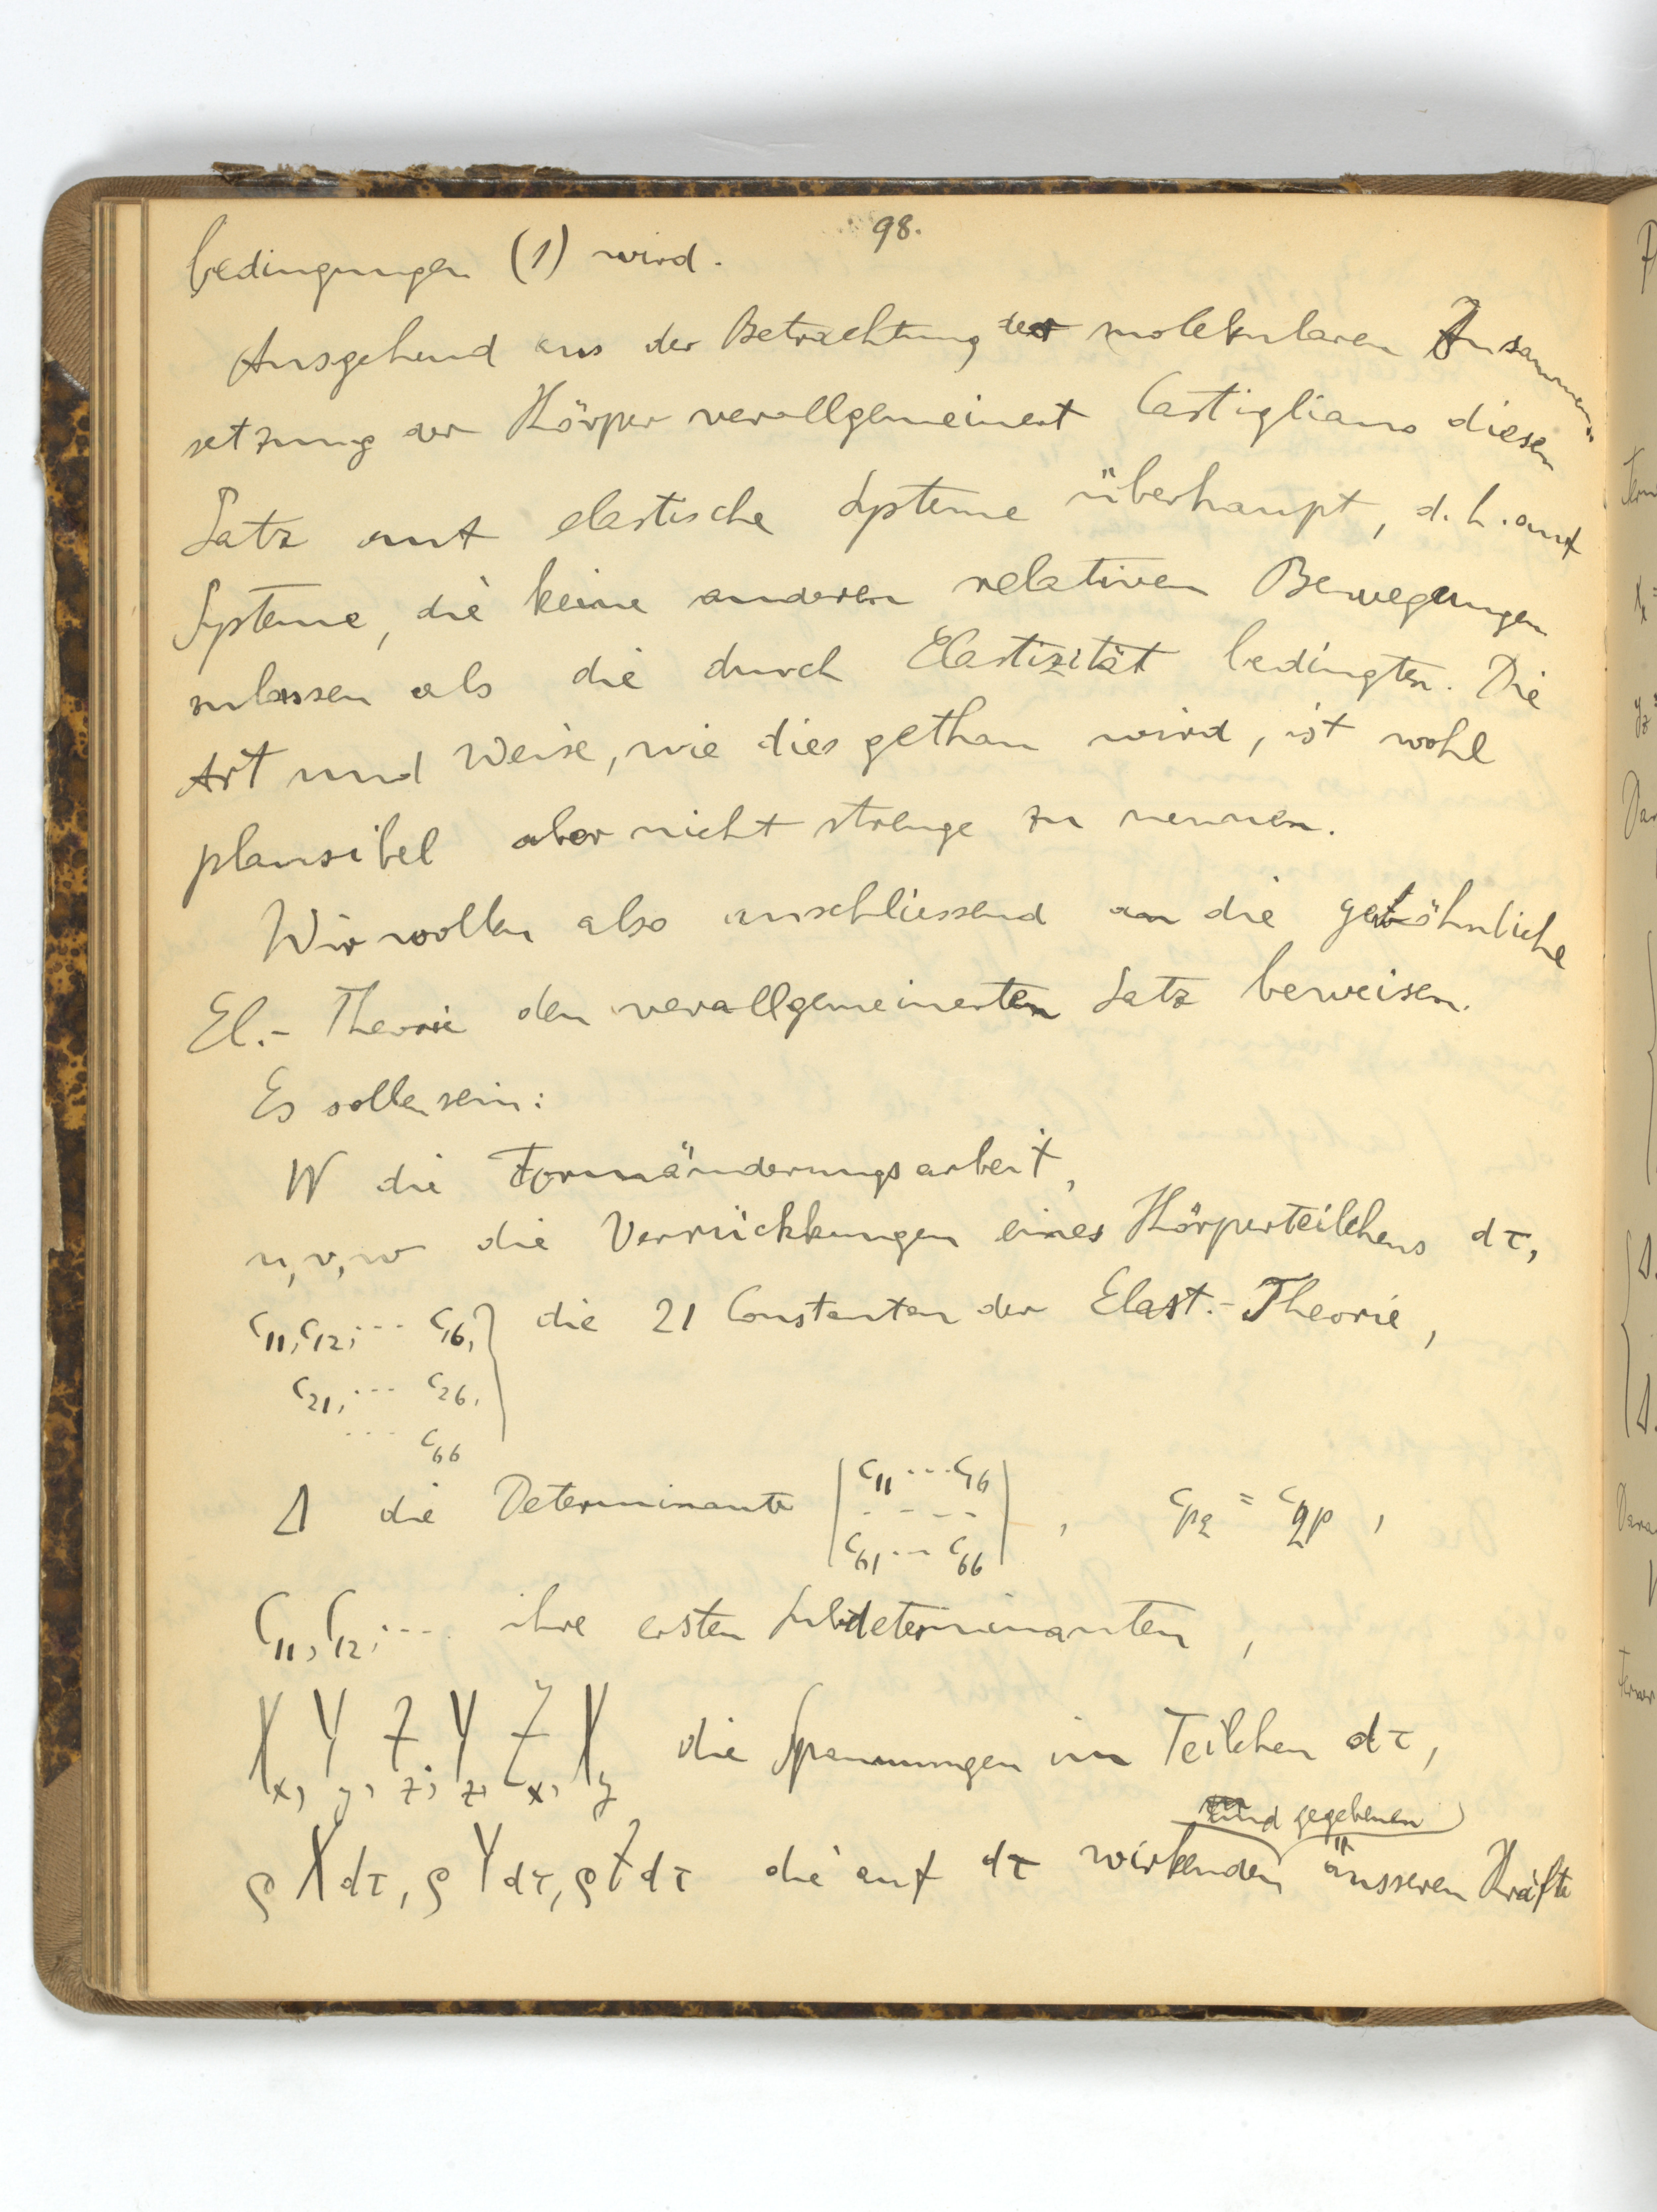 98.
bedingungen (1) wird.
Ausgehend aus der Betrachtung der molekularen Zusammen-
setzung der Körper verallgemeinert Castigliano diesen
Satz auf elastische Systeme überhaupt, d. h. auf
Systeme, die keine anderen relativen Bewegungen
zulassen als die durch Elastizität bedingten. Die
Art und Weise, wie dies gethan wird, ist wohl
plausibel aber nicht strenge zu nennen.
Wir wollen also anschliessend an die gewöhnliche
El.- Theorie den verallgemeinerten Satz beweisen.
Es sollen sein:
W die Formänderungsarbeit,
u, v, w die Verrückkungen eines Körperteilchens dτ,
c₁₁, c₁₂, ··· c₁₆, } die 21 Constanten der Elast.- Theorie,
c₂₁, ··· c₂₆,
··· c₆₆
Δ die Determinante | c₁₁ ··· c₁₆ | , c_pq = c_qp ,
- - - -
c₆₁ ··· c₆₆
C₁₁, C₁₂, ··· ihre ersten Subdeterminanten,
X_x, Y_y, Z_z, Y_z, Z_x, X_y die Spannungen im Teilchen dτ,
und gegebenen
ρXdτ, ρYdτ, ρZdτ die auf dτ wirkenden äusseren Kräfte